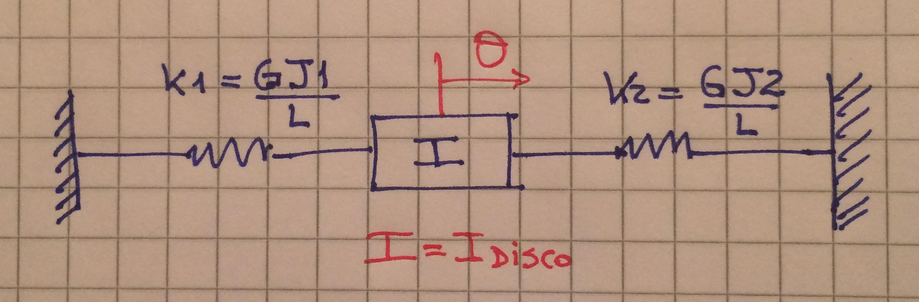 θ
K1 = GJ1/L
K2 = GJ2/L
I
I = I DISCO